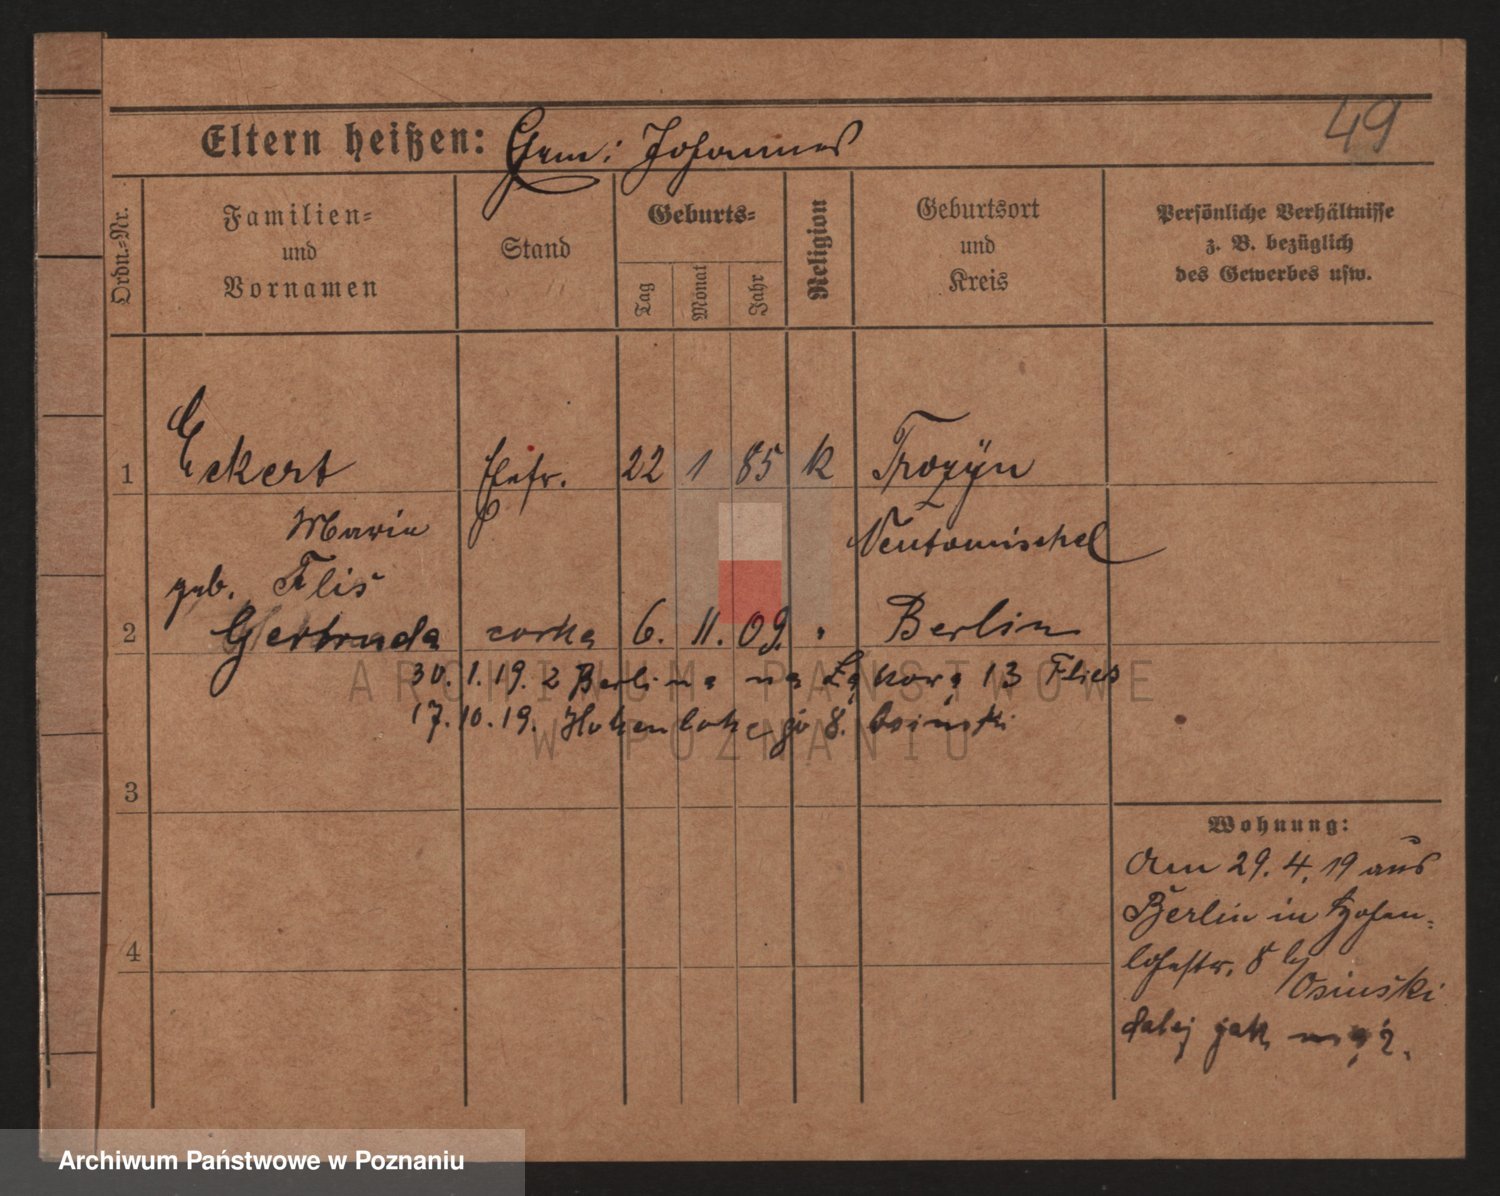 49
Eltern heißen: Gem: Johannes
Ordn.-Nr.
Familien- und Vornamen
Stand
Geburts-
Tag
Monat
Jahr
Religion
Geburtsort und Kreis
Persönliche Verhältnisse z. B. bezüglich des Gewerbes usw.
1 Eckert Ehefr. 22 1 85 k Trozÿn
Marie Neutomischel
geb. Flis
2 Gertruda corka 6. 11. 09. " Berlin
30.1.19. z Berlina na Łąkową 13 Flies
17.10.19. Hohenlohego 8. Osinski
3
Wohnung:
Am 29.4.19 aus
Berlin in Hohen-
lohestr. 8 b/
Osinski
4
dalej jak mąż.
ARCHIWUM PAŃSTWOWE
W POZNANIU
Archiwum Państwowe w Poznaniu